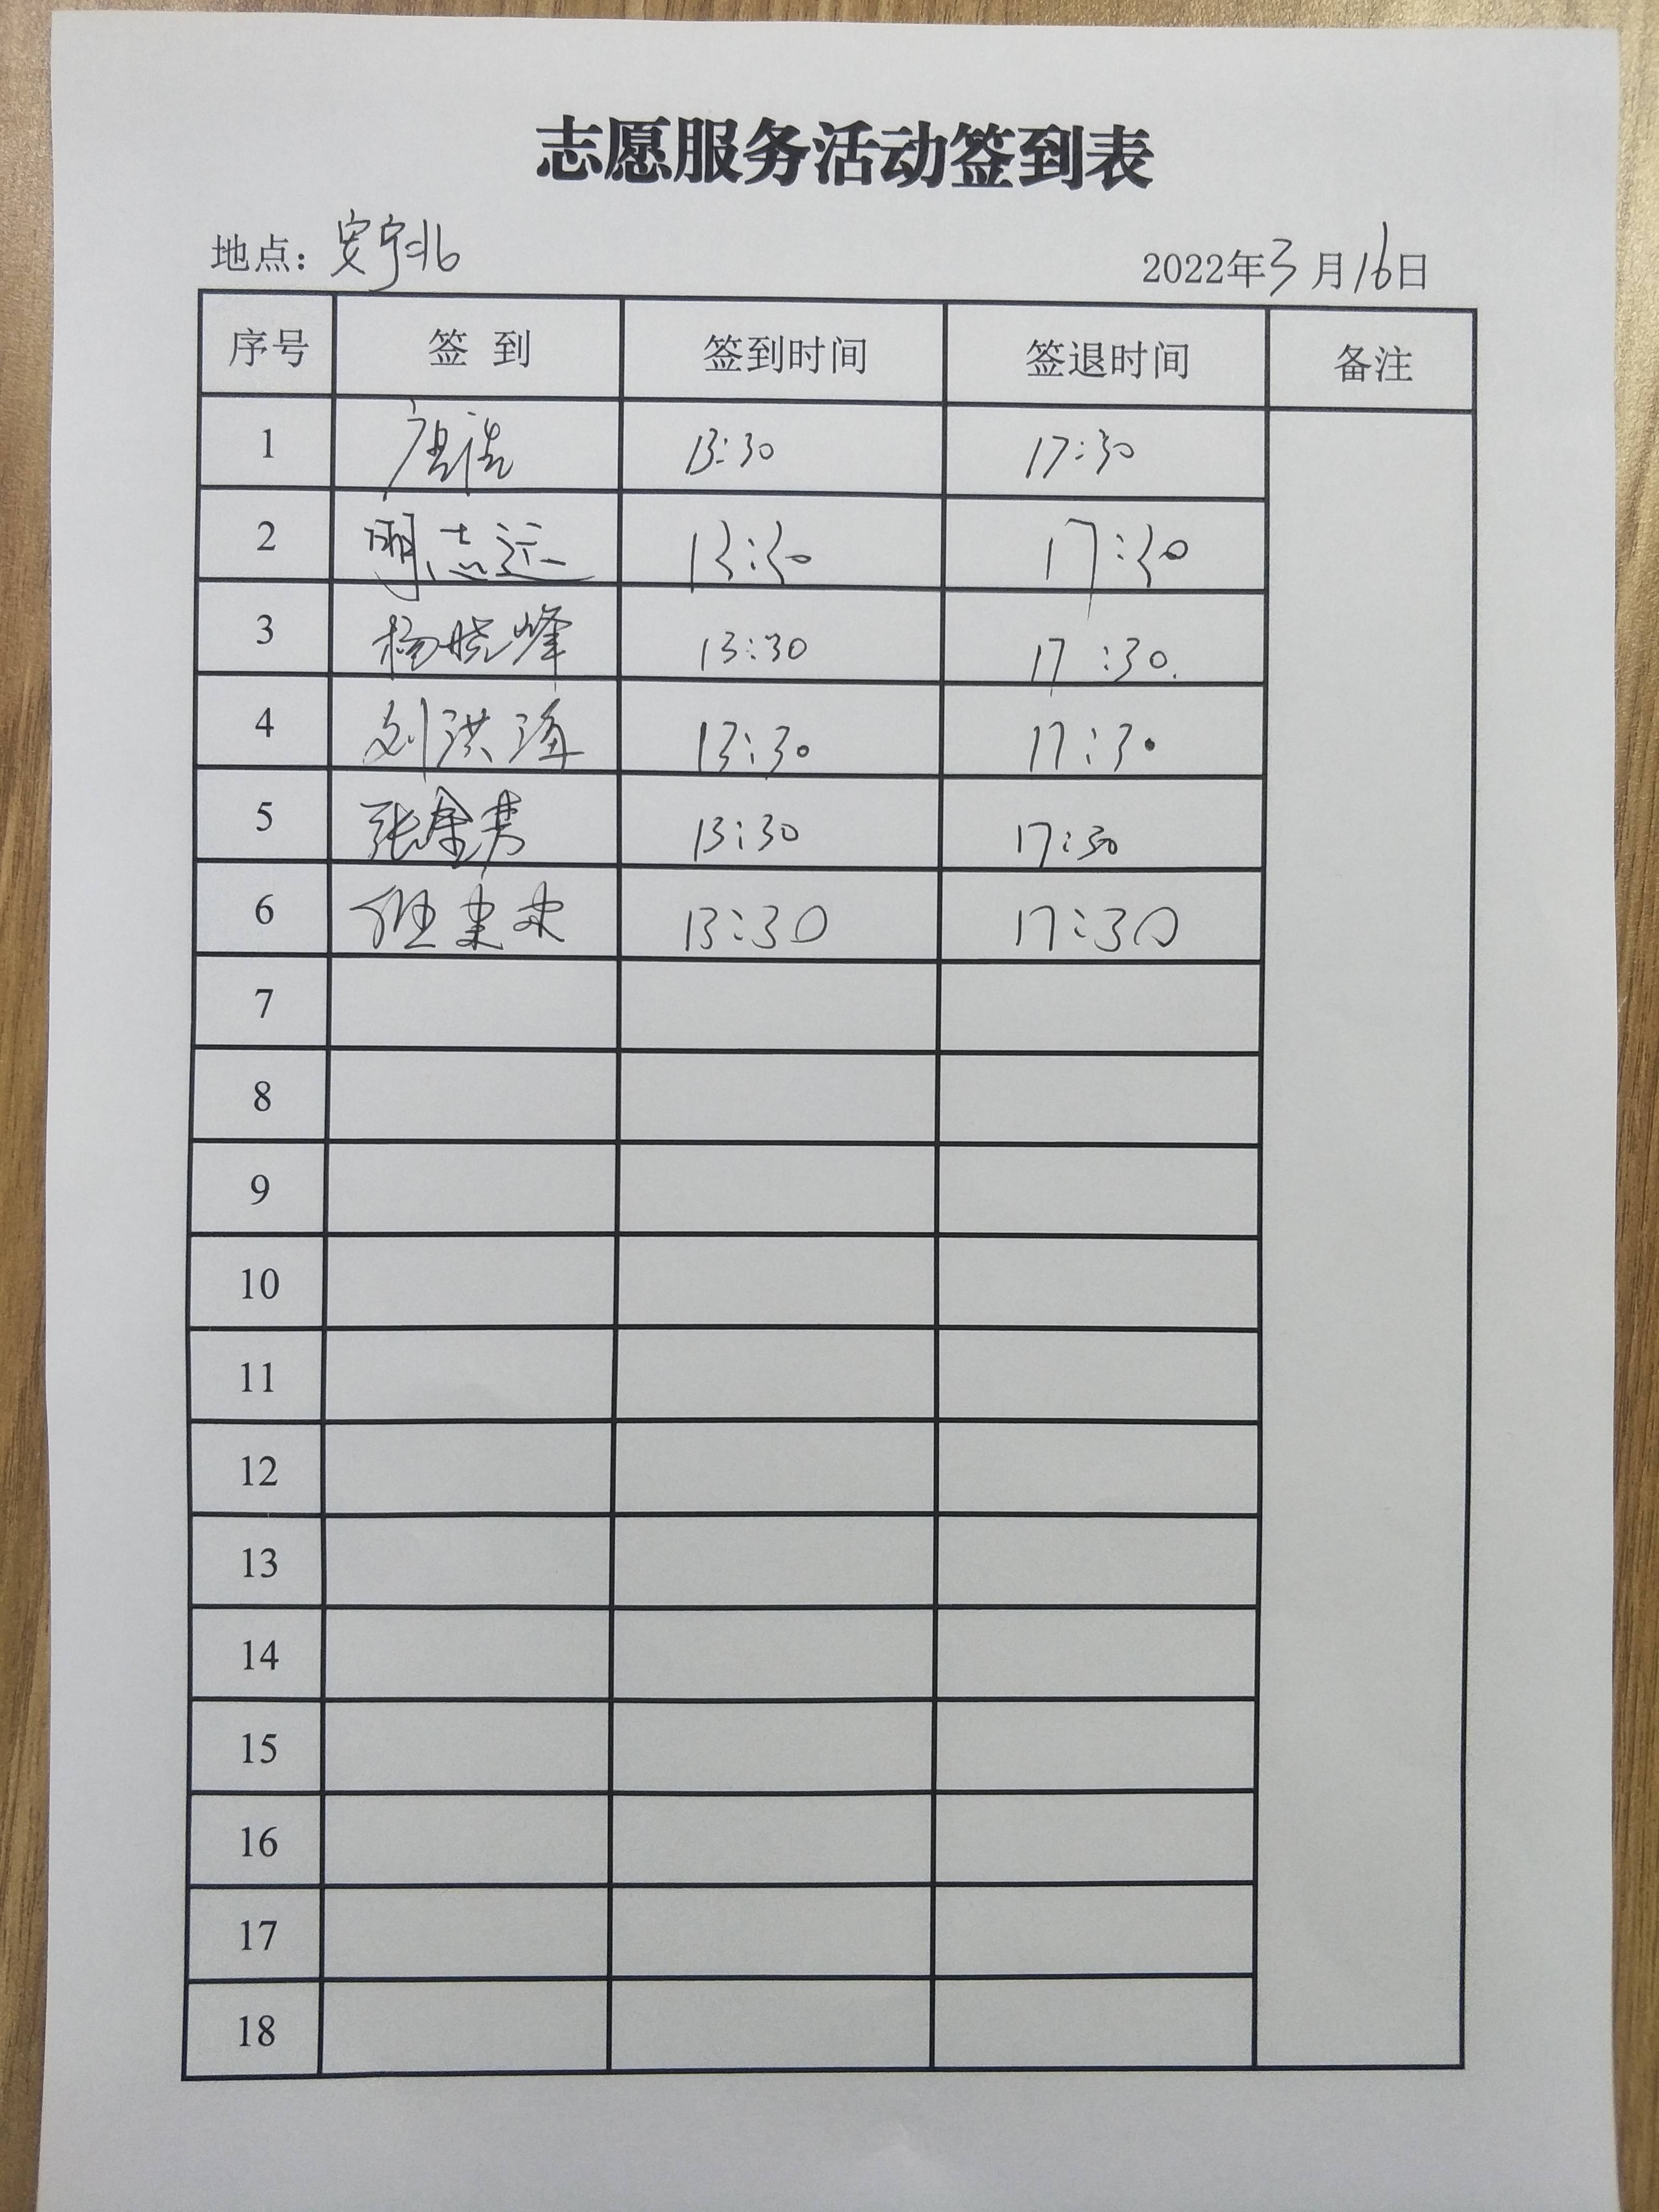 志愿服务活动签到表
地点：安宁北 2022年3月16日
序号 签到 签到时间 签退时间 备注
1 唐浩 13:30 17:30
2 明志远 13:30 17:30
3 杨晓峰 13:30 17:30.
4 刘洪海 13:30 17:30
5 张 13:30 17:30
6 13:30 17:30
7
8
9
10
11
12
13
14
15
16
17
18